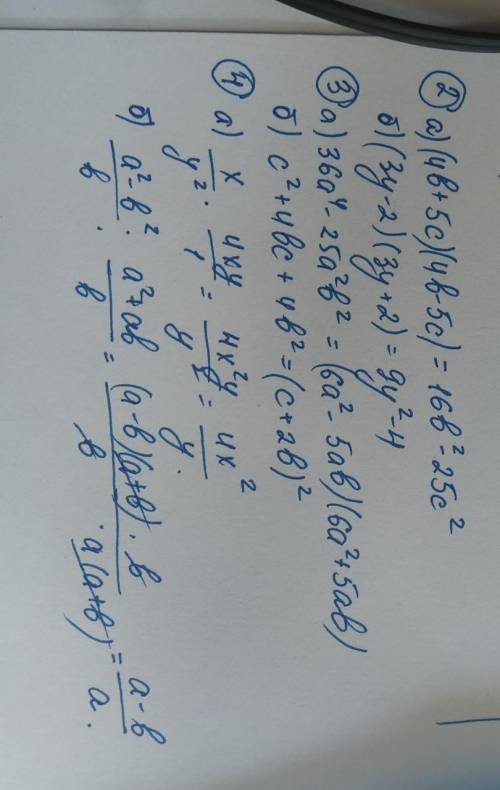 ② а) (4b+5c)(4b-5c) = 16b²-25c²
б) (3y-2)(3y+2) = 9y²-4
③ а) 36a⁴-25a²b² = (6a²-5ab)(6a²+5ab)
б) c²+4bc+4b² = (c+2b)²
④ а) x/y² · 4xy/1 = 4x²y/y² = 4x²/y.
б) a²-b²/b : a²+ab/b = (a-b)(a+b)·b/b·a(a+b) = a-b/a.